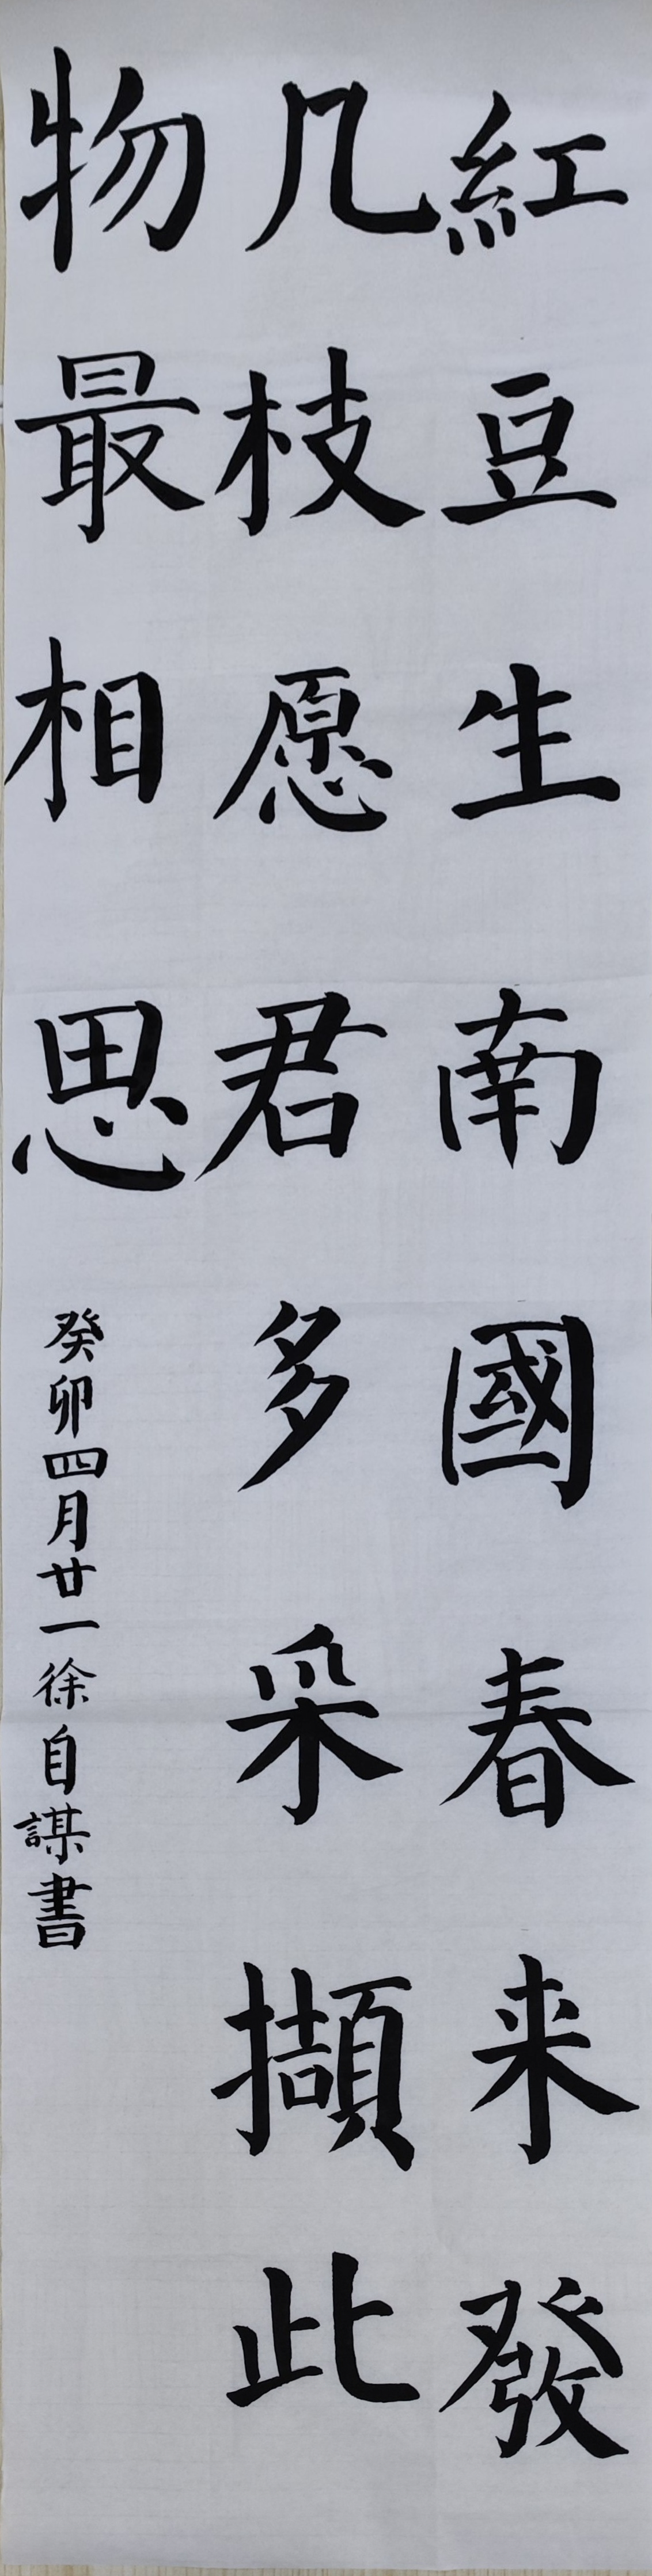 紅豆生南國春来發
几枝愿君多采擷此
物最相思
癸卯四月廿一徐自謀書